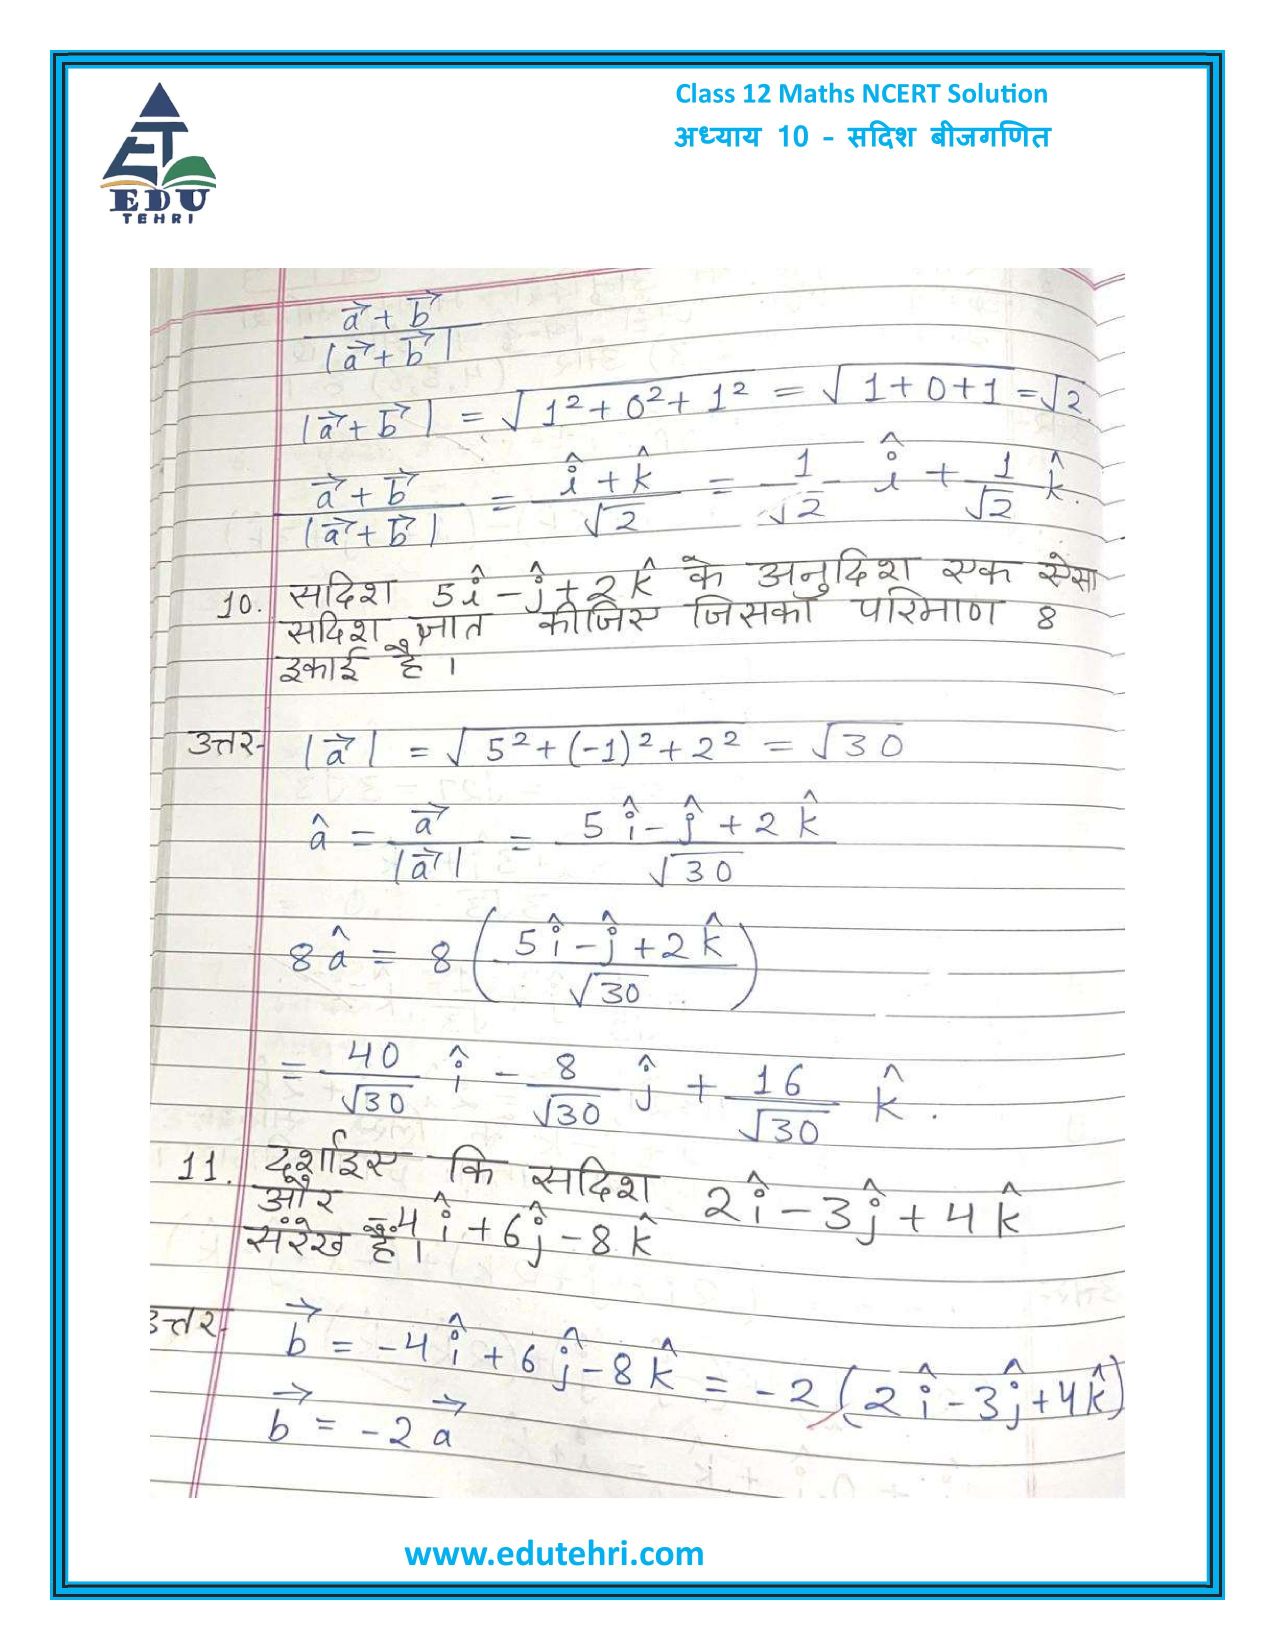 Class 12 Maths NCERT Solution
अध्याय 10 - सदिश बीजगणित
EDU
TEHRI
a⃗ + b⃗ / |a⃗ + b⃗|
|a⃗ + b⃗| = √(1² + 0² + 1²) = √(1 + 0 + 1) = √2
(a⃗ + b⃗) / |a⃗ + b⃗| = (î + k̂) / √2 = 1/√2 î + 1/√2 k̂.
10. सदिश 5î - ĵ + 2k̂ के अनुदिश एक ऐसा
सदिश ज्ञात कीजिए जिसका परिमाण 8
इकाई है ।
उत्तर- |a⃗| = √(5² + (-1)² + 2²) = √30
â = a⃗ / |a⃗| = (5î - ĵ + 2k̂) / √30
8â = 8 ((5î - ĵ + 2k̂) / √30)
= 40/√30 î - 8/√30 ĵ + 16/√30 k̂ .
11. दर्शाइए कि सदिश 2î - 3ĵ + 4k̂
और -4î + 6ĵ - 8k̂
संरेख हैं ।
उत्तर- b⃗ = -4î + 6ĵ - 8k̂ = -2 (2î - 3ĵ + 4k̂)
b⃗ = -2a⃗
www.edutehri.com